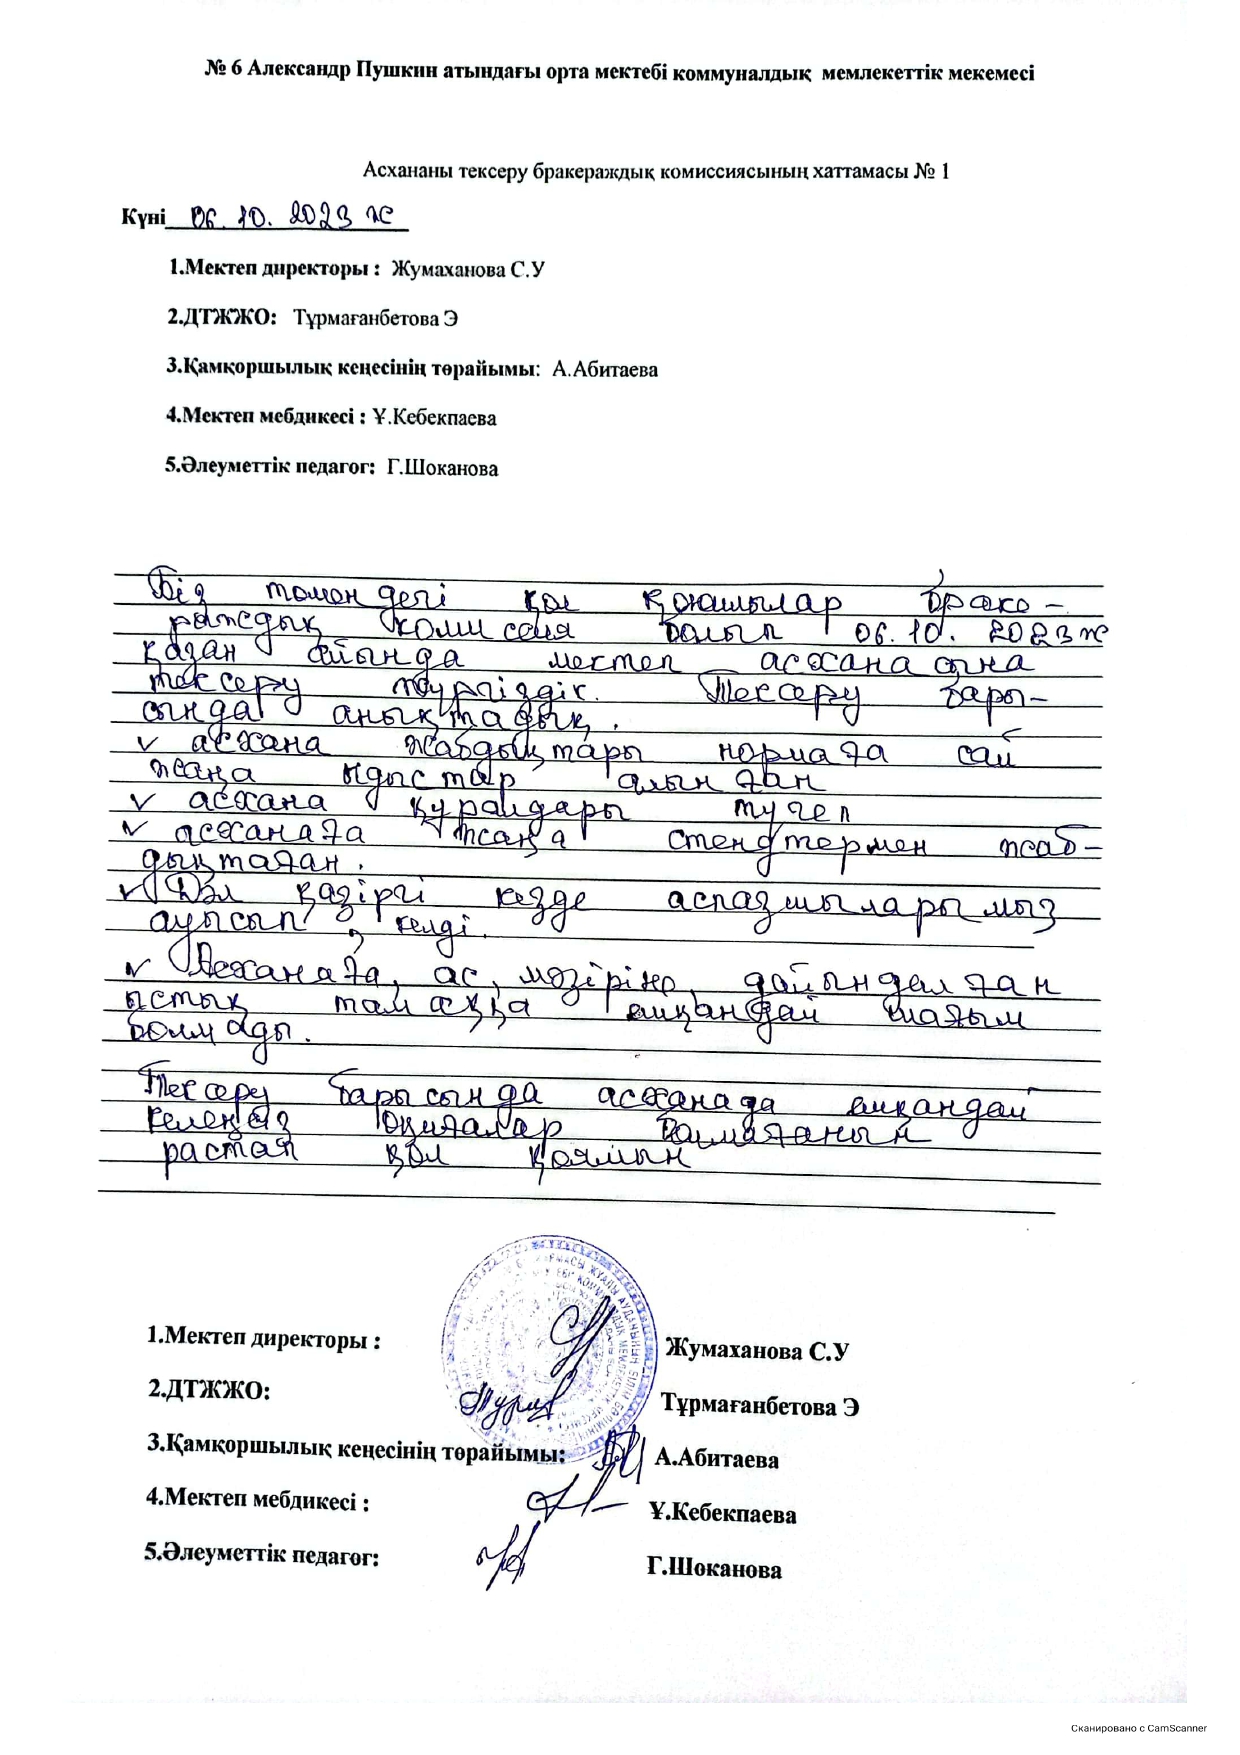 № 6 Александр Пушкин атындағы орта мектебі коммуналдық мемлекеттік мекемесі
Асхананы тексеру бракераждық комиссиясының хаттамасы № 1
Күні 06.10.2023 ж
1.Мектеп директоры : Жумаханова С.У
2.ДТЖЖО: Тұрмағанбетова Э
3.Қамқоршылық кеңесінің төрайымы: А.Абитаева
4.Мектеп мебдикесі : Ұ.Кебекпаева
5.Әлеуметтік педагог: Г.Шоканова
Біз төмендегі қол қоюшылар брако-
раждық комиссия болып 06.10.2023 ж
қазан айында мектеп асханасына
тексеру жүргіздік. Тексеру бары-
сында анықтадық.
✓ асхана жабдықтары нормаға сай
жаңа ыдыстар алынған
✓ асхана құралдары түгел
✓ асханаға жаңа стендтермен жаб-
дықтаған.
✓ Дәл қазіргі кезде аспазшыларымыз
ауысып келді.
✓ Асханаға, ас, мәзіріне, дайындалған
ыстық тамаққа ешқандай шағым
болмады.
Тексеру барысында асханада ешқандай
келеңсіз оқиғалар болмағанын
растап қол қоямын
1.Мектеп директоры : Жумаханова С.У
2.ДТЖЖО: Тұрмағанбетова Э
3.Қамқоршылық кеңесінің төрайымы: А.Абитаева
4.Мектеп мебдикесі : Ұ.Кебекпаева
5.Әлеуметтік педагог: Г.Шоканова
Сканировано с CamScanner